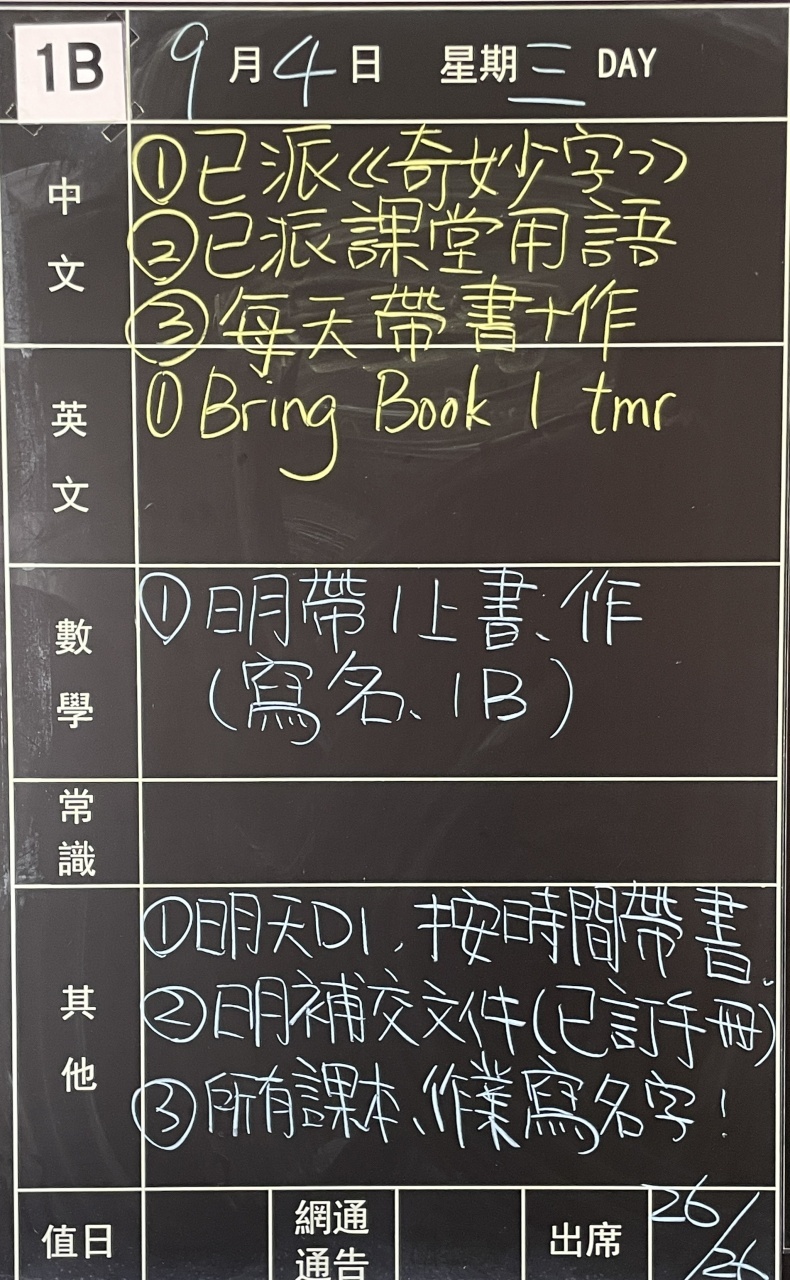 1B 9月4日 星期三 DAY
中文
①已派《奇妙字》
②已派課堂用語
③每天帶書+作
英文
①Bring Book 1 tmr
數學
①明帶1上書、作
(寫名、1B)
常識
其他
①明天D1,按時間帶書.
②明補交文件(已訂手冊)
③所有課本、作業寫名字!
值日 網通通告 出席 26/26